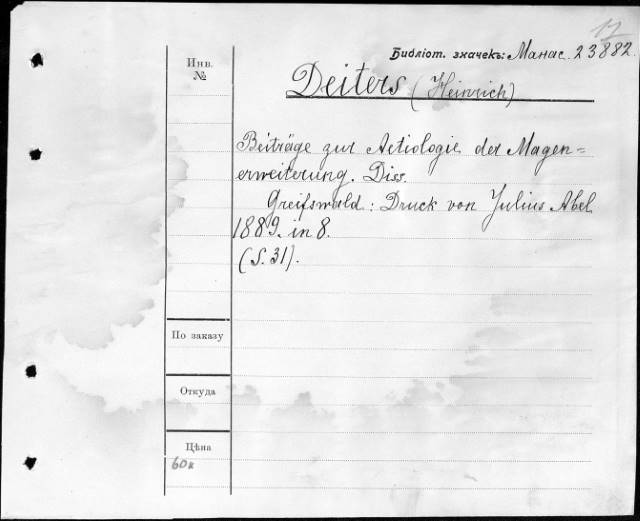 17
Библіот. значекъ: Манас. 23882.
Инв.
№
Deiters (Heinrich)
Beiträge zur Aetiologie der Magen=
erweiterung. Diss.
Greifswald: Druck von Julius Abel
1889. in 8.
(S. 31).
По заказу
Откуда
Цѣна
60к